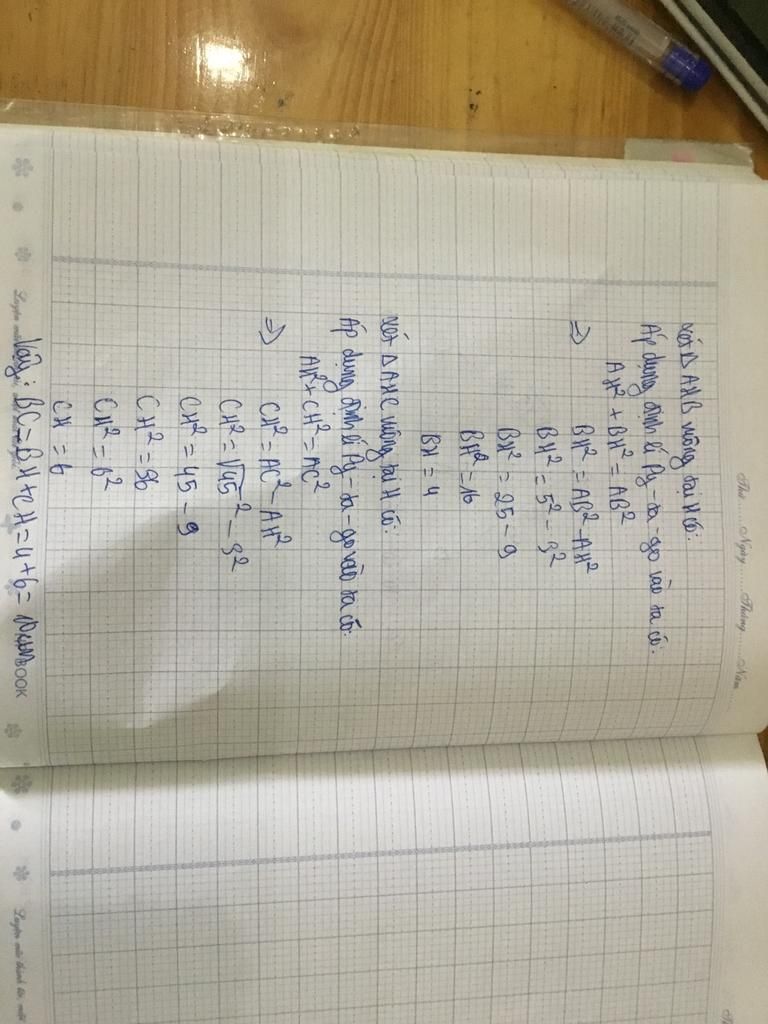 Thứ ..... Ngày ..... Tháng ..... Năm .....
Xét Δ AHB vuông tại H có:
Áp dụng định lí Py-ta-go vào ta có:
AH² + BH² = AB²
⇒ BH² = AB² - AH²
BH² = 5² - 3²
BH² = 25 - 9
BH² = 16
BH = 4
Xét Δ AHC vuông tại H có:
Áp dụng định lí Py-ta-go vào ta có:
AH² + CH² = AC²
⇒ CH² = AC² - AH²
CH² = √45² - 3²
CH² = 45 - 9
CH² = 36
CH² = 6²
CH = 6
Vậy: BC = BH + CH = 4 + 6 = 10cm
BOOK
Luyện mãi thành tài, miệt